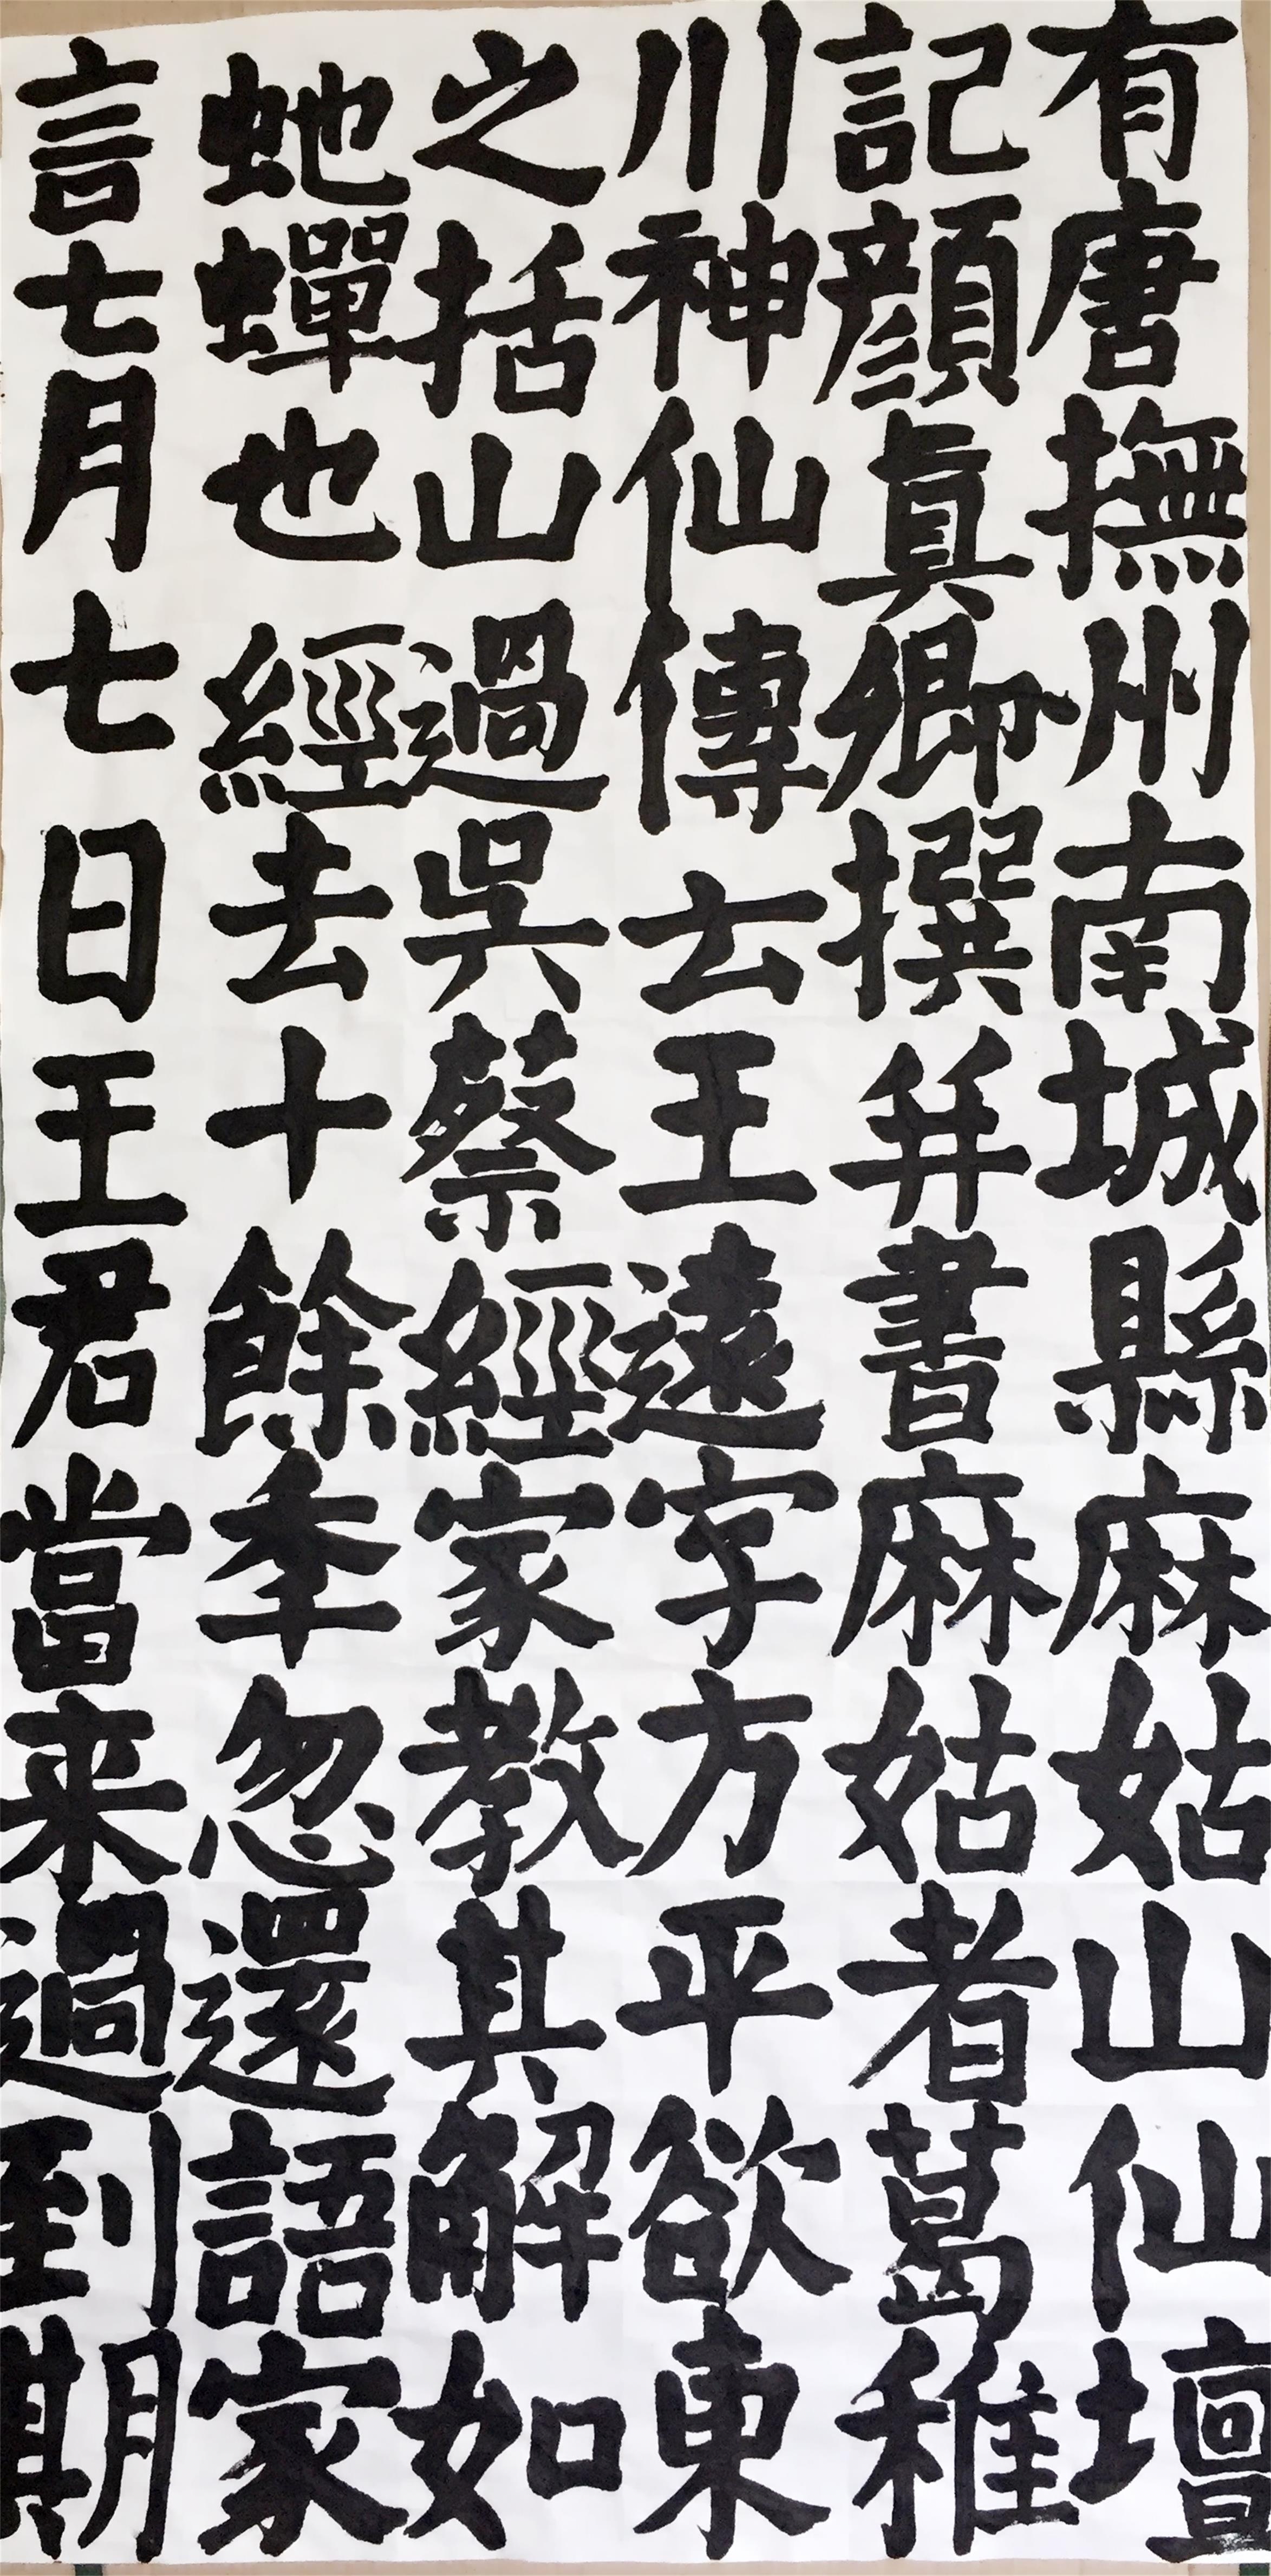 有唐撫州南城縣麻姑山仙壇
記顏真卿撰并書麻姑者葛稚
川神仙傳云王遠字方平欲東
之括山過吳蔡經家教其解如
虵蟬也經去十餘秊忽還語家
言七月七日王君當来過到期